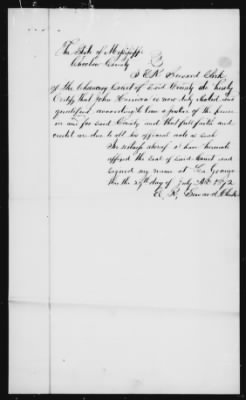 The State of Mississippi
Choctaw County
I E. R. Seward Clerk
of the Chancery Court of said County do hereby
Certify that John is now duly elected and
qualified according to law a justice of the peace
in and for said County and that full faith and
credit are due to all his official acts as such
In witness whereof I have hereunto
affixed the seal of said Court and
signed my name at La Grange
this the 29th day of July AD. 1872
E. R. Seward Clerk